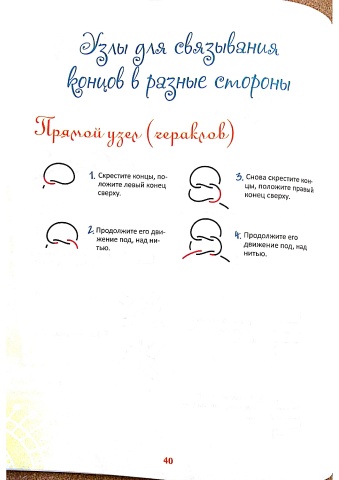 Узлы для связывания
концов в разные стороны
Прямой узел (гераклов)
1. Скрестите концы, по-
ложите левый конец
сверху.
2. Продолжите его дви-
жение под, над ни-
тью.
3. Снова скрестите кон-
цы, положите правый
конец сверху.
4. Продолжите его
движение под, над
нитью.
40